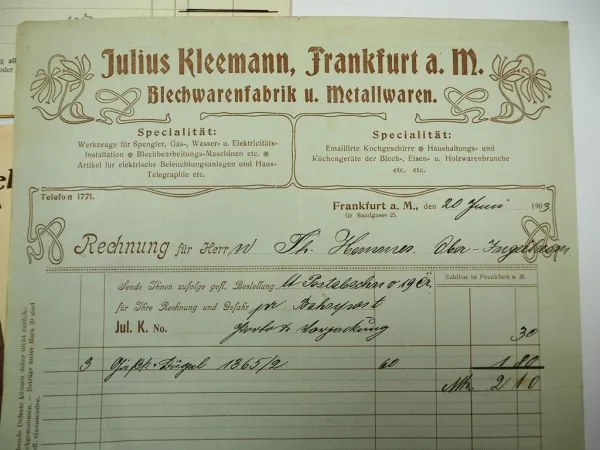 Julius Kleemann, Frankfurt a. M.
Blechwarenfabrik u. Metallwaren.
Specialität:
Werkzeuge für Spengler, Gas-, Wasser- u. Elektricitäts-
Installation * Blechbearbeitungs-Maschinen etc. *
Artikel für elektrische Beleuchtungsanlagen und Haus-
Telegraphie etc.
Specialität:
Emaillirte Kochgeschirre * Haushaltungs- und
Küchengeräte der Blech-, Eisen- u. Holzwarenbranche
etc. etc.
Telefon 1771.
Frankfurt a. M., den 20 Juni 1903
Gr. Sandgasse 25.
Rechnung für Herrn Ph. Ober-Ingelheim
Zahlbar in Frankfurt a. M.
Sende Ihnen zufolge gefl. Bestellung lt Postabschn v 19 Cr.
für Ihre Rechnung und Gefahr pr Bahnpost
Jul. K. No. Porto & Verpackung 30
3 Bügel 1365/2 60 1 80
Mk 2 10